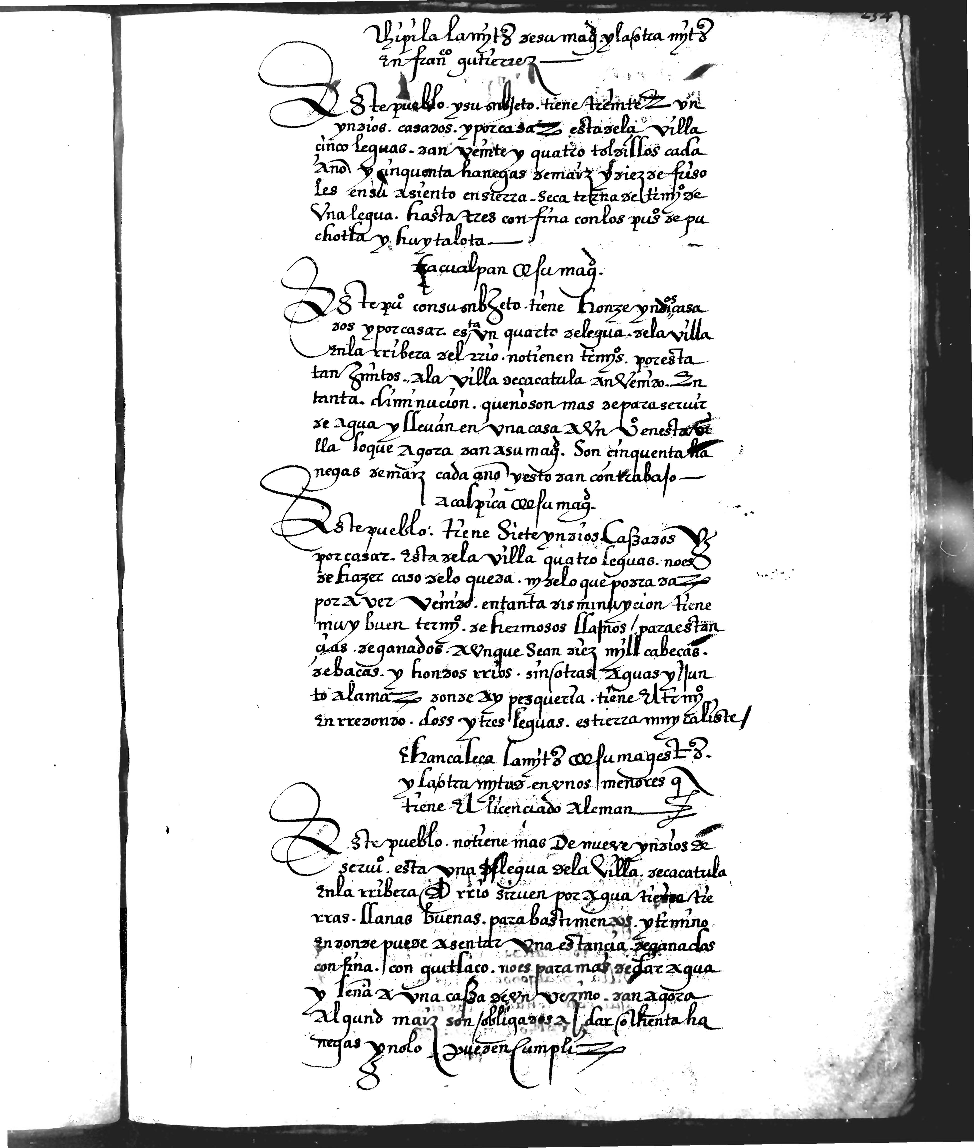 thipila la mytad de su magd y la otra mytad
en franco gutierrez
Este pueblo y su subjeto tiene treinta y un
yndios casados y por casar esta de la villa
cinco leguas dan veinte y quatro toldillos cada
año y cinquenta hanegas de maiz y diez de friso
les en su asiento en sierra seca terna de termyº de
una legua hasta tres confina con los puºs de pu
chotla y huytalota
tacualpan de su magd.
Este puº con su subjeto tiene honze yndios casa
dos y por casar esta un quarto de legua de la villa
en la rribera del rrio no tienen termyºs por esta
tan juntos a la villa de cacatula an venido en
tanta diminucion que no son mas de para servir
de agua y llevan en una casa a un vº en esta vi
lla lo que agora dan a su magd. Son cinquenta ha
negas de maiz cada año y esto dan con trabajo
acalpica de su magd.
Este pueblo tiene siete yndios Cassados y
por casar esta de la villa quatro leguas no es
de hazer caso de lo que da ny de lo que podra dar
por aver venido en tanta disminuycion tiene
muy buen termyº de hermosos llanos / para estan
cias de ganados aunque sean diez mill cabecas
de bacas y hondos rrios sin otras aguas y jun
to a la mar donde ay pesqueria tiene el termyº
en rredondo doss y tres leguas es tierra muy caliste /
chancaleca la mytad de su magestad.
y la otra mytad en unos menores q
tiene El licenciado Aleman
Este pueblo no tiene mas De nueve yndios de
serviº esta una legua de la Villa de cacatula
en la rribera del rrio sirven por agua tiene tie
rras llanas buenas para bastimentos y termino
en donde puede asentar una estancia de ganados
confina con quitlaco no es para mas de dar agua
y leña a una cassa de un vezino dan agora
Algund maiz son obligados a dar ochenta ha
negas y no lo pueden Cumplir